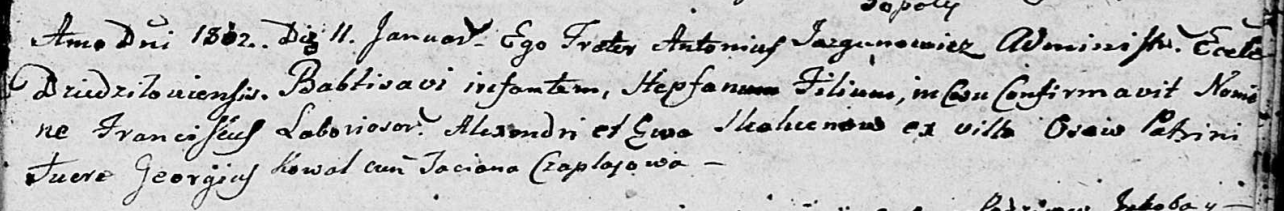 Topoly
Anno Dni 1802. Die 11. Januar. Ego Frater Antonius Jazgunowicz Administr. Eccle
Dziedziłoviensis. Babtisavi infantem, Stepfanum Filium, in Csu Confirmavit Nomi
ne Franciscus Laboriosor. Alexandri et Ewa Skakunow ex villa Osow Patrini
Fuere Georgius Kowal cum Taciana Czaplajowa —